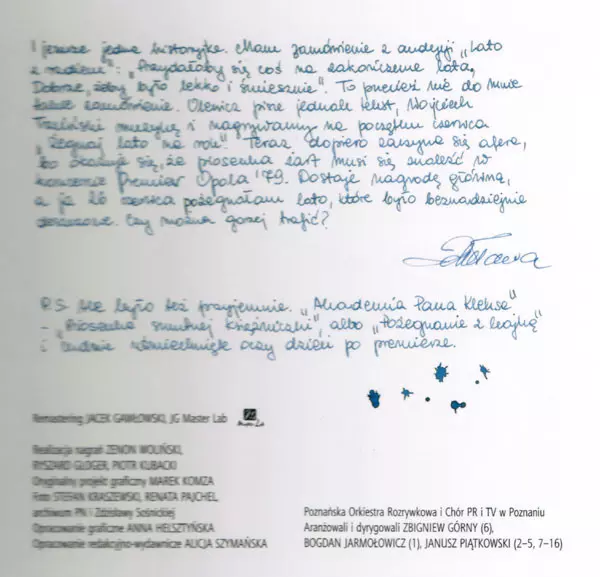 I jeszcze jedna historyjka. Mam zamówienie z audycji „Lato
z radiem": „Przydałoby się coś na zakończenie lata,
Dobrze, żeby było lekko i śmiesznie". To przecież nie do mnie
takie zamówienie. Olewicz pisze jednak tekst, Wojciech
Trzciński muzykę i nagrywamy na początku czerwca
„Żegnaj lato na rok". Teraz dopiero zaczyna się afera,
bo okazuje się, że piosenka żart musi się znaleźć w
koncercie Premier Opola '79. Dostaje nagrodę główną,
a ja 26 czerwca pożegnałam lato, które było beznadziejnie
deszczowe. Czy można gorzej trafić?
P.S. Ale było też przyjemnie. „Akademia Pana Kleksa"
- „Piosenka smutnej księżniczki", albo „Pożegnanie z bajką"
i cudnie uśmiechnięte oczy dzieci po premierze.
Remastering JACEK GAWŁOWSKI, JG Master Lab
Realizacja nagrań ZENON WOLIŃSKI,
RYSZARD GLOGER, PIOTR KUBACKI
Oryginalny projekt graficzny MAREK KOMZA
Foto STEFAN KRASZEWSKI, RENATA PAJCHEL,
archiwum PN i Zdzisławy Sośnickiej
Opracowanie graficzne ANNA HELSZTYŃSKA
Opracowanie redakcyjno-wydawnicze ALICJA SZYMAŃSKA
Poznańska Orkiestra Rozrywkowa i Chór PR i TV w Poznaniu
Aranżowali i dyrygowali ZBIGNIEW GÓRNY (6),
BOGDAN JARMOŁOWICZ (1), JANUSZ PIĄTKOWSKI (2–5, 7–16)